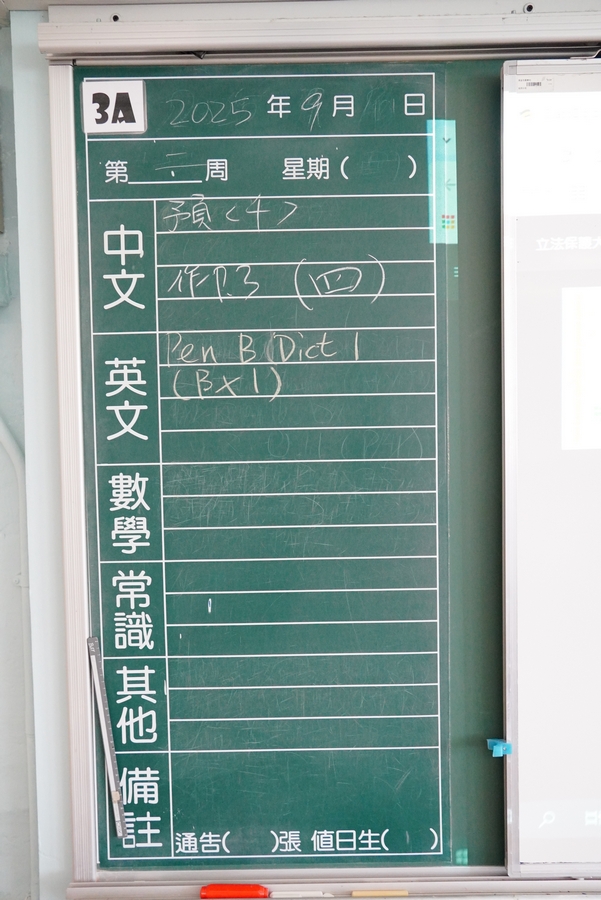 3A
2025 年 9 月 日
第 二 周 星期( )
中文
預<4>
作P.3 (四)
英文
Pen B Dict 1
(B×1)
數學
常識
其他
備註
通告( )張 值日生( )
立法保護